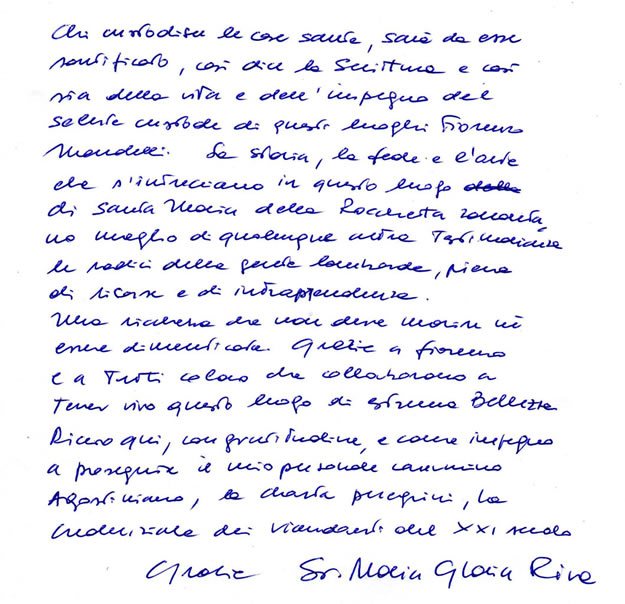 Chi custodisce le cose sante, sarà da esse
santificato, così dice la Scrittura e così
sia della vita e dell'impegno del
solerte custode di questi luoghi Fiorenzo
Mandelli. La storia, la fede e l'arte
che s'intrecciano in questo luogo della
di Santa Maria della Rocchetta raccontano
no meglio di qualunque altra Testimonianza
le radici della gente lombarda, piena
di risorse e di intraprendenza.
Una ricchezza che non deve morire né
essere dimenticata. Grazie a Fiorenzo
e a Tutti coloro che collaborano a
Tener vivo questo luogo di estrema Bellezza
Ricevo qui, con gratitudine, e come impegno
a proseguire il mio personale cammino
Agostiniano, la charta peregrini, la
credenziale dei viandanti del XXI secolo
Grazie Sr. Maria Gloria Riva